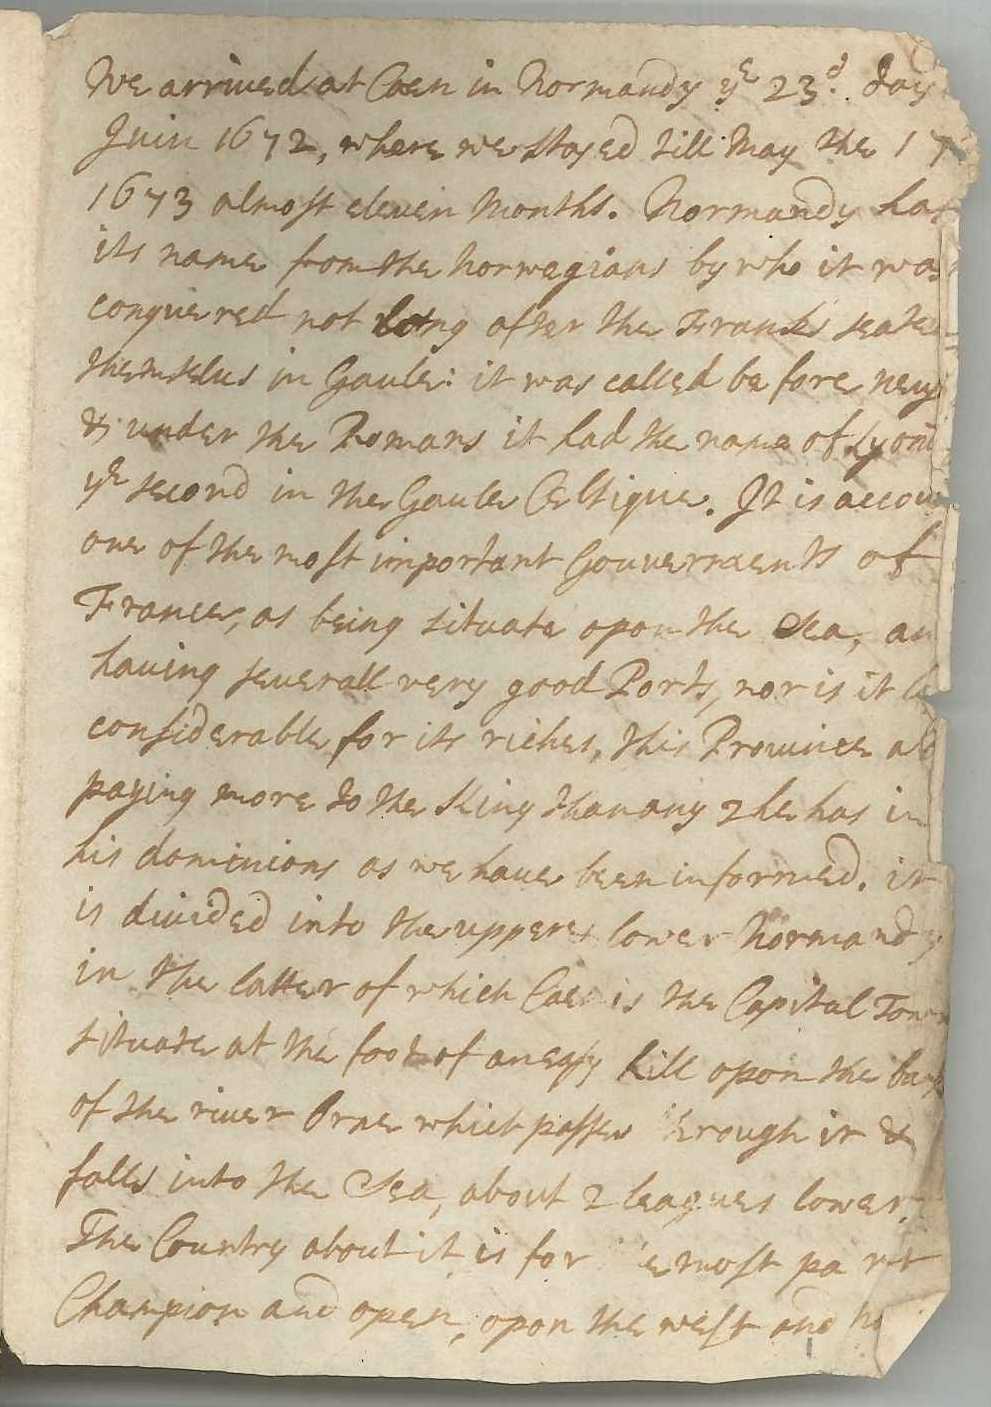 We arrived at Caen in Normandy ye 23d. day
Juin 1672, where we stayed till May the 17
1673 almost eleven Months. Normandy has
its name from the Norwegians by who it was
conquered not long after the Franks seate
themselus in Gaule: it was called before
& under the Romans it had the name of
ye second in the Gaule Celtique. It is accou
one of the most important Gouvernments of
France, as being situate upon the Sea, an
having severall very good Ports, nor is it le
considerable for its riches, this Province al
paying more to the King than any 2 he has in
his dominions as we have been informed. it
is divided into the upper & lower Normandy
in the latter of which Caen is the Capital Town
situate at the foot of an easy hill upon the bank
of the river Orne which passes through it &
falls into the Sea, about 2 leagues lower.
The Country about it is for e most part
Champion and open, upon the west and